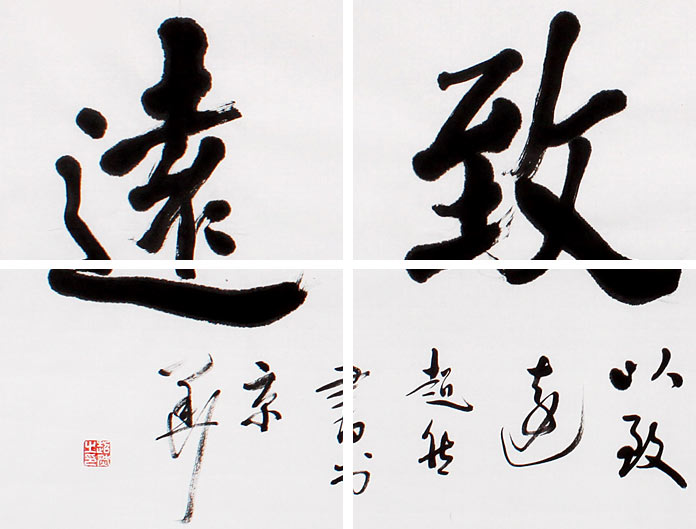 致遠
以致
遠
超然
書於
京
華